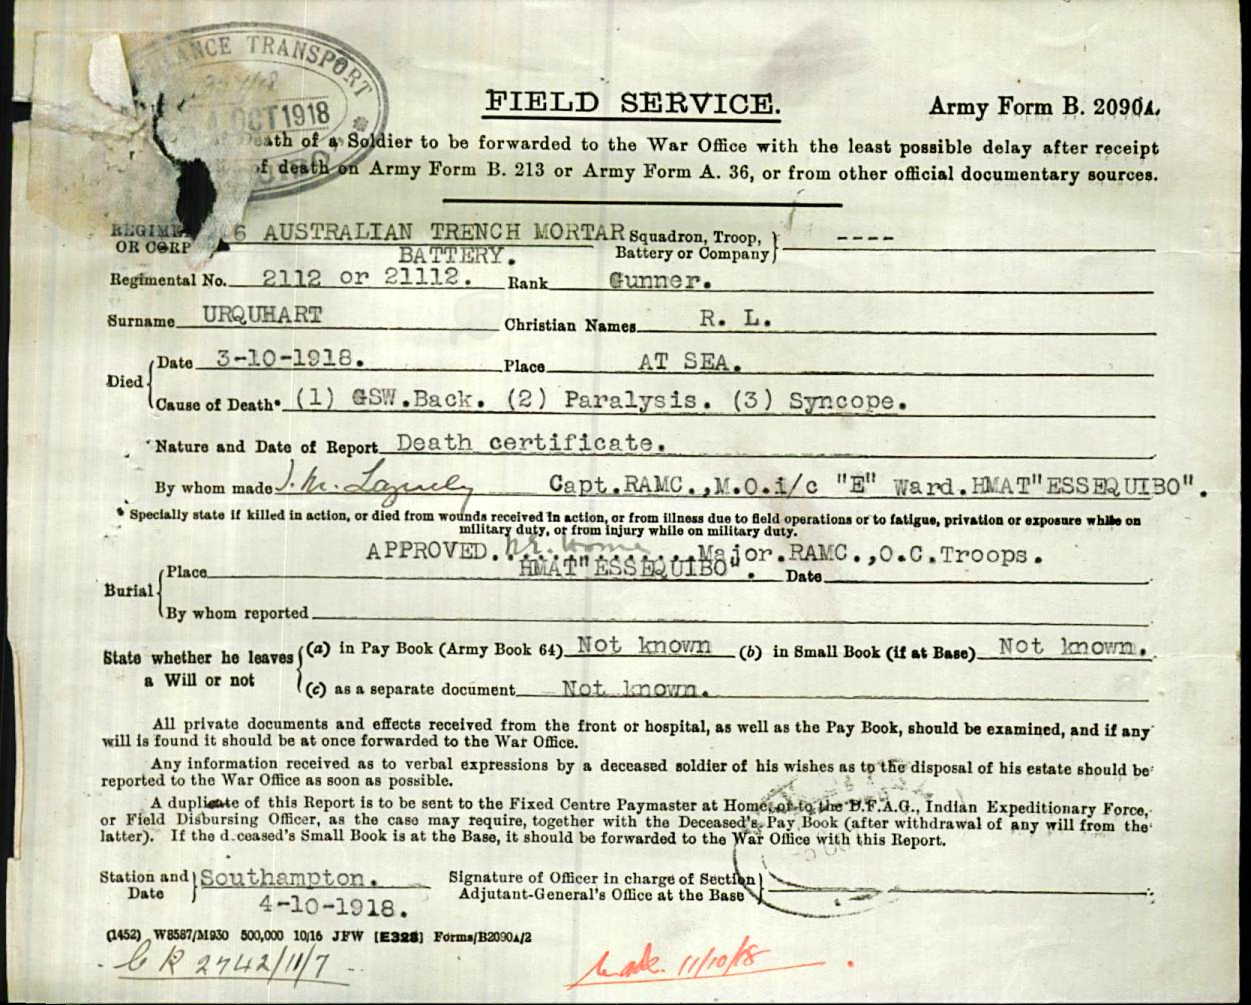 ANCE TRANSPORT
4 OCT 1918
FIELD SERVICE. Army Form B. 2090A.
eath of a Soldier to be forwarded to the War Office with the least possible delay after receipt
of death on Army Form B. 213 or Army Form A. 36, or from other official documentary sources.
REGIME 6 AUSTRALIAN TRENCH MORTAR Squadron, Troop, ----
OR CORP BATTERY. Battery or Company
Regimental No. 2112 or 21112. Rank Gunner.
Surname URQUHART Christian Names R. L.
Died Date 3-10-1918. Place AT SEA.
Cause of Death* (1) GSW.Back. (2) Paralysis. (3) Syncope.
Nature and Date of Report Death certificate.
By whom made Capt.RAMC.,M.O.i/c "E" Ward.HMAT"ESSEQUIBO".
* Specially state if killed in action, or died from wounds received in action, or from illness due to field operations or to fatigue, privation or exposure while on
military duty, or from injury while on military duty.
APPROVED. Major.RAMC.,O.C.Troops.
HMAT"ESSEQUIBO".
Burial Place Date
By whom reported
State whether he leaves a Will or not (a) in Pay Book (Army Book 64) Not known (b) in Small Book (if at Base) Not known.
(c) as a separate document Not known.
All private documents and effects received from the front or hospital, as well as the Pay Book, should be examined, and if any
will is found it should be at once forwarded to the War Office.
Any information received as to verbal expressions by a deceased soldier of his wishes as to the disposal of his estate should be
reported to the War Office as soon as possible.
A duplicate of this Report is to be sent to the Fixed Centre Paymaster at Home, or to the D.F.A.G., Indian Expeditionary Force,
or Field Disbursing Officer, as the case may require, together with the Deceased's Pay Book (after withdrawal of any will from the
latter). If the d.ceased's Small Book is at the Base, it should be forwarded to the War Office with this Report.
Station and Southampton. Signature of Officer in charge of Section
Date 4-10-1918. Adjutant-General's Office at the Base
(1452) W8587/M930 500,000 10/16 JFW [E328] Forms/B2090A/2
C R 2742/11/7
11/10/18